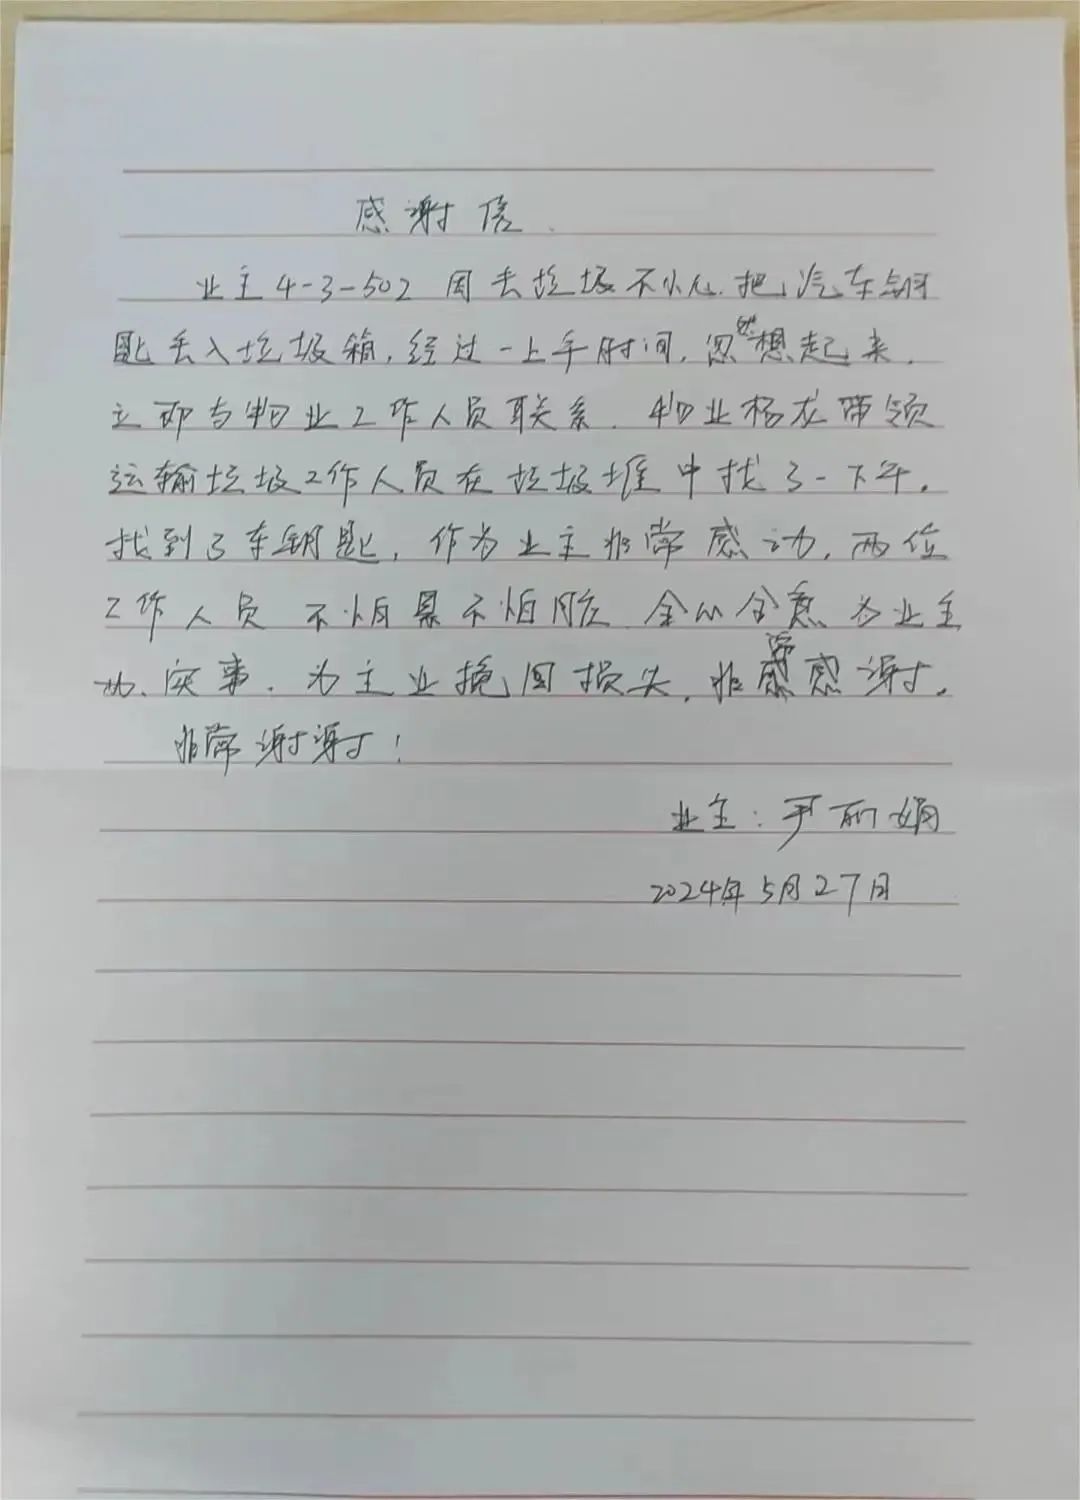 感谢信.
业主4-3-502 因丢垃圾不小心.把汽车钥
匙丢入垃圾箱,经过一上午时间,忽然想起来.
立即与物业工作人员联系.物业杨龙带领
运输垃圾工作人员在垃圾堆中找了一下午.
找到了车钥匙,作为业主非常感动,两位
工作人员 不怕臭不怕脏 全心全意为业主
办实事.为主业挽回损失.非常感谢.
非常谢谢!
业主:尹丽娟
2024年5月27日